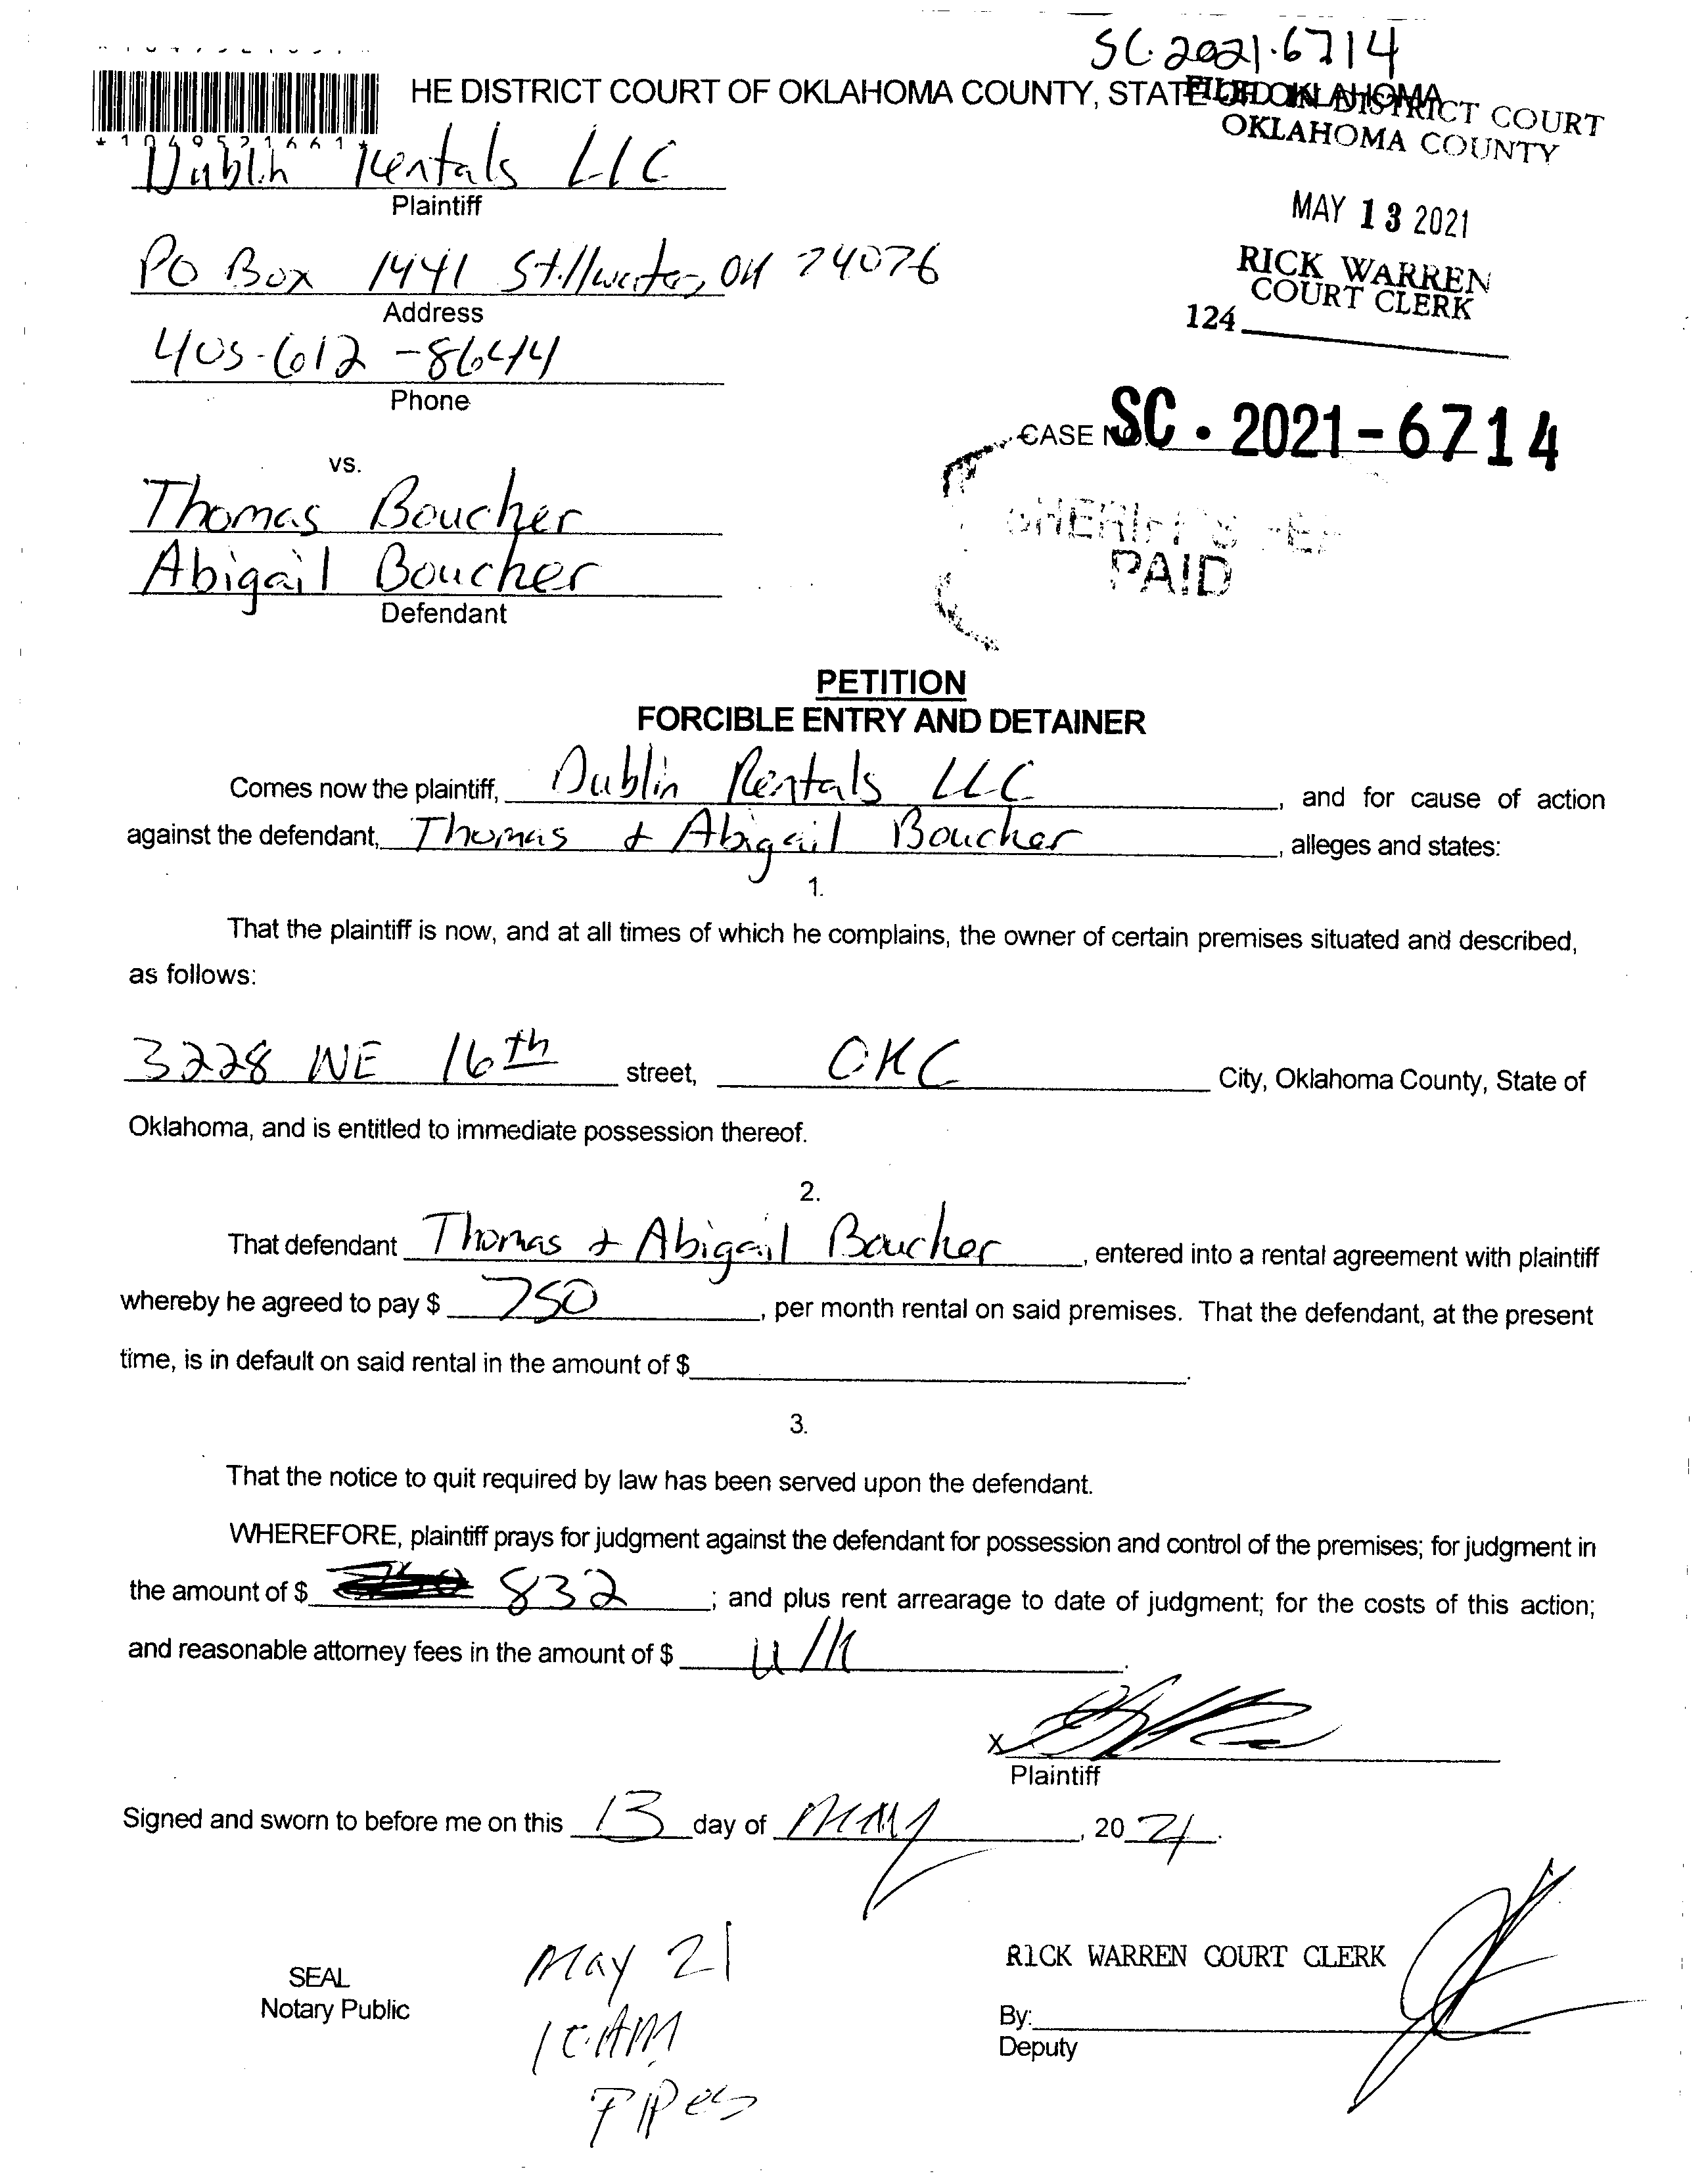 SC.2021.6714
HE DISTRICT COURT OF OKLAHOMA COUNTY, STATE OF OKLAHOMA
FILED IN DISTRICT COURT
OKLAHOMA COUNTY
*1049521661*
Dublin Rentals LLC
Plaintiff
MAY 13 2021
PO Box 1441 Stillwater, OK 74076
Address
RICK WARREN
COURT CLERK
124
405-612-8644
Phone
CASE NO. SC. 2021-6714
vs.
Thomas Boucher
SHERIFF'S
PAID
Abigail Boucher
Defendant
PETITION
FORCIBLE ENTRY AND DETAINER
Comes now the plaintiff, Dublin Rentals LLC, and for cause of action
against the defendant, Thomas + Abigail Boucher, alleges and states:
1.
That the plaintiff is now, and at all times of which he complains, the owner of certain premises situated and described,
as follows:
3228 NE 16th street, OKC City, Oklahoma County, State of
Oklahoma, and is entitled to immediate possession thereof.
2.
That defendant Thomas + Abigail Boucher, entered into a rental agreement with plaintiff
whereby he agreed to pay $ 750, per month rental on said premises. That the defendant, at the present
time, is in default on said rental in the amount of $ .
3.
That the notice to quit required by law has been served upon the defendant.
WHEREFORE, plaintiff prays for judgment against the defendant for possession and control of the premises; for judgment in
the amount of $ 832; and plus rent arrearage to date of judgment; for the costs of this action;
and reasonable attorney fees in the amount of $ .
X
Plaintiff
Signed and sworn to before me on this 13 day of MAY, 20 21.
May 21
RICK WARREN COURT CLERK
SEAL
Notary Public
10 AM
By:
Deputy